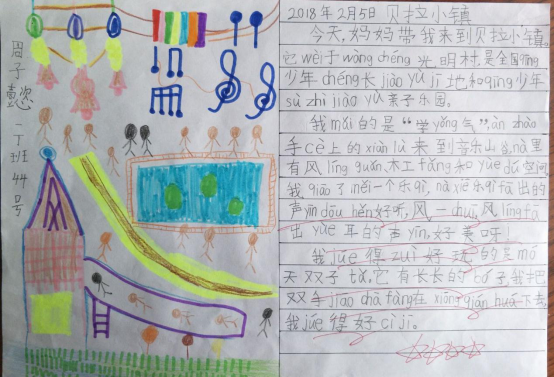 周子懿
一丁班
44号
2018年2月5日 贝拉小镇
今天,妈妈带我来到贝拉小镇。
它wèi于wàng chéng光明村,是全国qīng
少年chéng长jiào yù jī地和qīng少年
sù zhì jiào yù亲子乐园。
我mǎi的是“学yǒng气”,àn zhào
手cè上的xiàn lù来到音乐山谷,nà里
有风líng guǎn、木工fāng和
我qiāo了měi一个乐qì,nà xiē乐qì fā出的
声yīn dōu hěn好听,风一chuī,风líng fā
出yuè耳的声yīn,好美呀!
我jué得zuì好玩的是mó
天双子tǎ,它有长长的
双手jiāo chā fàng在xiōng qián huá下去,
我jué得好cì jī。